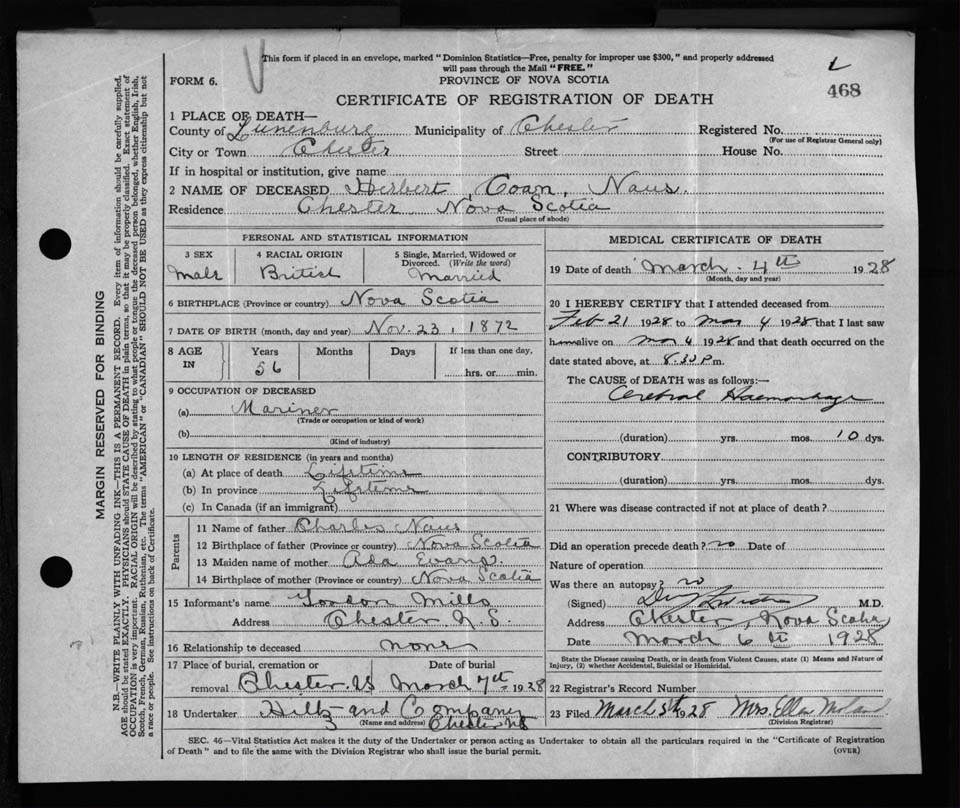 This form if placed in an envelope, marked "Dominion Statistics—Free, penalty for improper use $300," and properly addressed
will pass through the Mail "FREE."
FORM 6.
PROVINCE OF NOVA SCOTIA
468
CERTIFICATE OF REGISTRATION OF DEATH
1 PLACE OF DEATH—
County of Lunenburg Municipality of Chester Registered No.
(For use of Registrar General only)
City or Town Chester Street House No.
If in hospital or institution, give name
2 NAME OF DECEASED Herbert Coan Naus.
Residence Chester Nova Scotia
(Usual place of abode)
PERSONAL AND STATISTICAL INFORMATION
3 SEX 4 RACIAL ORIGIN 5 Single, Married, Widowed or
Divorced. (Write the word)
Male British Married
6 BIRTHPLACE (Province or country) Nova Scotia
7 DATE OF BIRTH (month, day and year) Nov. 23, 1872
8 AGE IN Years Months Days If less than one day,
56 hrs. or min.
9 OCCUPATION OF DECEASED
(a) Mariner
(Trade or occupation or kind of work)
(b)
(Kind of industry)
10 LENGTH OF RESIDENCE (in years and months)
(a) At place of death Lifetime
(b) In province Lifetime
(c) In Canada (if an immigrant)
Parents
11 Name of father Charles Naus
12 Birthplace of father (Province or country) Nova Scotia
13 Maiden name of mother Ada Evans
14 Birthplace of mother (Province or country) Nova Scotia
15 Informant's name Gordon Mills
Address Chester N.S.
16 Relationship to deceased none
17 Place of burial, cremation or Date of burial
removal Chester NS March 7th 1928
18 Undertaker Hilts and Company
(Name and address) Chester NS
MEDICAL CERTIFICATE OF DEATH
19 Date of death March 4th 1928
(Month, day and year)
20 I HEREBY CERTIFY that I attended deceased from
Feb 21 1928 to Mar 4 1928 that I last saw
him alive on Mar 4 1928 and that death occurred on the
date stated above, at 8.30 P.m.
The CAUSE of DEATH was as follows:—
Cerebral Haemorrhage
(duration) yrs. mos. 10 dys.
CONTRIBUTORY
(duration) yrs. mos. dys.
21 Where was disease contracted if not at place of death?
Did an operation precede death? no Date of
Nature of operation
Was there an autopsy? no
(Signed) M.D.
Address Chester, Nova Scotia
Date March 6th 1928
State the Disease causing Death, or in death from Violent Causes, state (1) Means and Nature of
Injury, (2) whether Accidental, Suicidal or Homicidal.
22 Registrar's Record Number
23 Filed March 5th 1928 Mrs. Ellen
(Division Registrar)
SEC. 46—Vital Statistics Act makes it the duty of the Undertaker or person acting as Undertaker to obtain all the particulars required in the "Certificate of Registration
of Death" and to file the same with the Division Registrar who shall issue the burial permit.
(OVER)
MARGIN RESERVED FOR BINDING
N.B.—WRITE PLAINLY WITH UNFADING INK—THIS IS A PERMANENT RECORD. Every item of information should be carefully supplied.
AGE should be stated EXACTLY. PHYSICIANS should STATE CAUSE OF DEATH in plain terms, so that it may be properly classified. Exact statement of
OCCUPATION is very important. RACIAL ORIGIN will be described by stating to what people or tongue the deceased person belonged, whether English, Irish,
Scotch, French, German, Russian, Ruthenian, etc. The terms "AMERICAN" or "CANADIAN" SHOULD NOT BE USED as they express citizenship but not
a race or people. See instructions on back of Certificate.